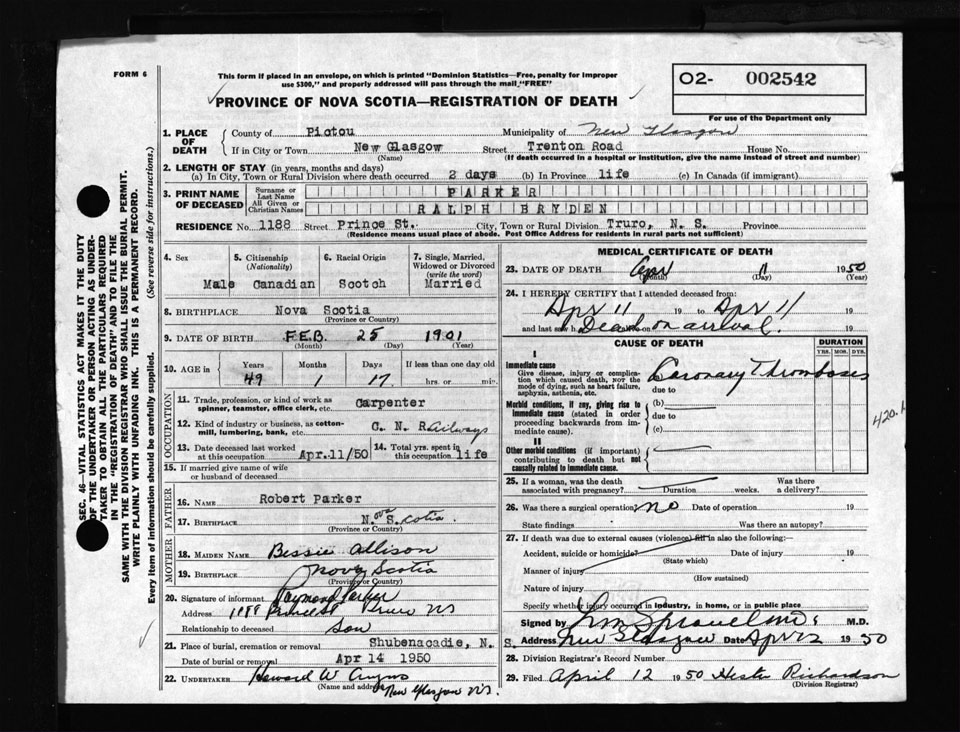 FORM 6
This form if placed in an envelope, on which is printed "Dominion Statistics—Free, penalty for improper
use $300," and properly addressed will pass through the mail "FREE"
O2- 002542
For use of the Department only
PROVINCE OF NOVA SCOTIA—REGISTRATION OF DEATH
SEC. 46—VITAL STATISTICS ACT MAKES IT THE DUTY
OF THE UNDERTAKER OR PERSON ACTING AS UNDER-
TAKER TO OBTAIN ALL THE PARTICULARS REQUIRED
IN THE "REGISTRATION OF DEATH" AND TO FILE THE
SAME WITH THE DIVISION REGISTRAR WHO SHALL ISSUE THE BURIAL PERMIT.
WRITE PLAINLY WITH UNFADING INK. THIS IS A PERMANENT RECORD.
Every item of information should be carefully supplied. (See reverse side for instructions.)
1. PLACE OF DEATH
County of Pictou Municipality of New Glasgow
If in City or Town New Glasgow Street Trenton Road House No.
(Name) (If death occurred in a hospital or institution, give the name instead of street and number)
2. LENGTH OF STAY (in years, months and days)
(a) In City, Town or Rural Division where death occurred 2 days (b) In Province life (c) In Canada (if immigrant)
3. PRINT NAME OF DECEASED
Surname or Last Name PARKER
All Given or Christian Names RALPH BRYDEN
RESIDENCE No. 1188 Street Prince St. City, Town or Rural Division Truro, N. S. Province
(Residence means usual place of abode. Post Office Address for residents in rural parts not sufficient)
4. Sex 5. Citizenship (Nationality) 6. Racial Origin 7. Single, Married, Widowed or Divorced (write the word)
Male Canadian Scotch Married
8. BIRTHPLACE Nova Scotia
(Province or Country)
9. DATE OF BIRTH FEB. 25 1901
(Month) (Day) (Year)
10. AGE in Years Months Days If less than one day old
49 1 17 hrs. or min.
OCCUPATION
11. Trade, profession, or kind of work as
spinner, teamster, office clerk, etc. Carpenter
12. Kind of industry or business, as cotton-
mill, lumbering, bank, etc. C. N. Railways
13. Date deceased last worked
at this occupation Apr.11/50
14. Total yrs. spent in
this occupation life
15. If married give name of wife
or husband of deceased
FATHER
16. NAME Robert Parker
17. BIRTHPLACE Nova Scotia.
(Province or Country)
MOTHER
18. MAIDEN NAME Bessie Allison
19. BIRTHPLACE Nova Scotia
(Province or Country)
20. Signature of informant Raymond Parker
Address 1188 Prince St Truro NS
Relationship to deceased Son
21. Place of burial, cremation or removal Shubenacadie, N. S.
Date of burial or removal Apr 14 1950
22. UNDERTAKER Howard W Angus
(Name and address) New Glasgow N.S.
MEDICAL CERTIFICATE OF DEATH
23. DATE OF DEATH Apr 11 1950
(Month) (Day)
24. I HEREBY CERTIFY that I attended deceased from:
Apr 11 19 to Apr 11 19
and last saw h Dead on arrival. 19
CAUSE OF DEATH DURATION
YRS. MOS. DYS.
I
Immediate cause
Give disease, injury or complica-
tion which caused death, NOT the
mode of dying, such as heart failure,
asphyxia, asthenia, etc.
Coronary Thromboses
due to
Morbid conditions, if any, giving rise to
immediate cause (stated in order
proceeding backwards from im-
mediate cause).
(b)
due to
(c)
420.1
II
Other morbid conditions (if important)
contributing to death but not
causally related to immediate cause.
25. If a woman, was the death
associated with pregnancy? Duration weeks. Was there
a delivery?
26. Was there a surgical operation? no Date of operation 19
State findings Was there an autopsy?
27. If death was due to external causes (violence) fill in also the following:—
Accident, suicide or homicide? Date of injury 19
(State which)
Manner of injury
(How sustained)
Nature of injury
Specify whether injury occurred in industry, in home, or in public place
Signed by M.D.
Address New Glasgow Date Apr 12 1950
28. Division Registrar's Record Number
29. Filed April 12 1950 Hester Richardson
(Division Registrar)